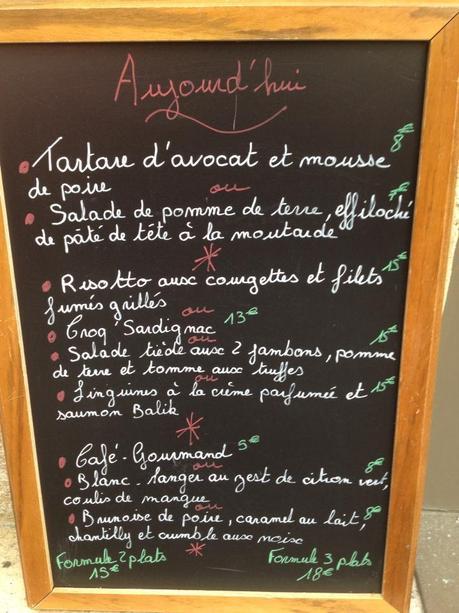 Aujourd'hui
Tartare d'avocat et mousse 8€
de poire
ou
Salade de pomme de terre, effiloché 7€
de pâté de tête à la moutarde
Risotto aux courgettes et filets 15€
fumés grillés
ou
Croq'Sardignac 13€
ou
Salade tiède aux 2 jambons, pomme 15€
de terre et tomme aux truffes
ou
Linguines à la crème parfumée et 15€
saumon Balik
Café-Gourmand 5€
ou
Blanc-Manger au zest de citron vert, 8€
coulis de mangue
ou
Brunoise de poire, caramel au lait, 8€
chantilly et crumble aux noix
Formule 2 plats Formule 3 plats
15€ 18€